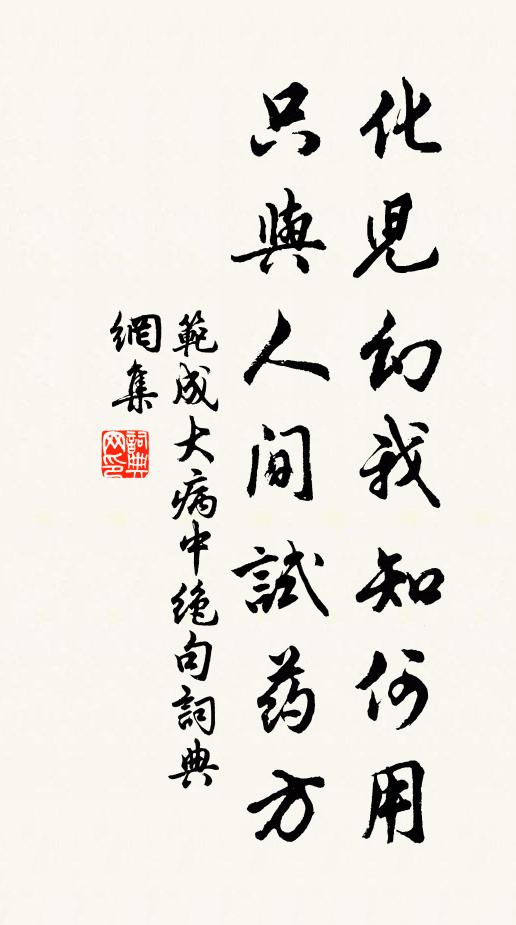 化児幻我知何用
只與人間試药方
範成大病中绝句詞典
網集
詞典
网印